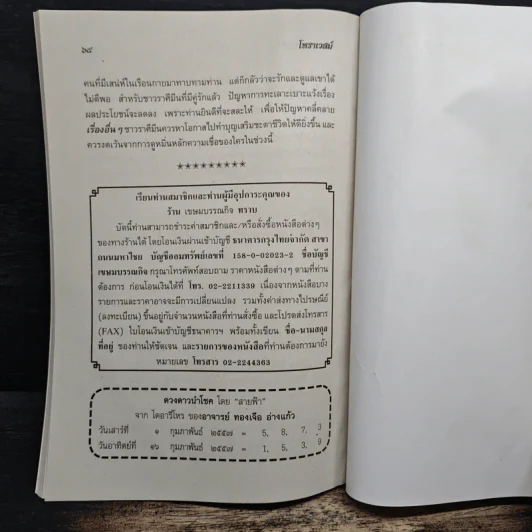 ๖๘
โหราเวสม์
คนที่มีเสน่ห์ในเรือนกายมาทาบทามท่าน แต่ก็กลัวว่าจะรักและดูแลเขาได้
ไม่ดีพอ สำหรับชาวราศีมีนที่มีคู่รักแล้ว ปัญหาการทะเลาะเบาะแว้งเรื่อง
ผลประโยชน์จะลดลง เพราะท่านยินดีที่จะสละให้ เพื่อให้ปัญหาคลี่คลาย
เรื่องอื่น ๆ ชาวราศีมีนควรหาโอกาสไปทำบุญเสริมชะตาชีวิตให้ดียิ่งขึ้น และ
ควรงดเว้นจากการดูหมิ่นหลักความเชื่อของใครในช่วงนี้
*********
เรียนท่านสมาชิกและท่านผู้มีอุปการะคุณของ
ร้าน เขษมบรรณกิจ ทราบ
บัดนี้ท่านสามารถชำระค่าสมาชิกและ/หรือสั่งซื้อหนังสือต่างๆ
ของทางร้านได้ โดยโอนเงินผ่านเข้าบัญชี ธนาคารกรุงไทยจำกัด สาขา
ถนนมหาไชย บัญชีออมทรัพย์เลขที่ 158-0-02023-2 ชื่อบัญชี
เขษมบรรณกิจ กรุณาโทรศัพท์สอบถาม ราคาหนังสือต่างๆ ตามที่ท่าน
ต้องการ ก่อนโอนเงินได้ที่ โทร. 02-2211339 เนื่องจากหนังสือบาง
รายการและราคาอาจจะมีการเปลี่ยนแปลง รวมทั้งค่าส่งทางไปรษณีย์
(ลงทะเบียน) ขึ้นอยู่กับจำนวนหนังสือที่ท่านสั่งซื้อ และโปรดส่งโทรสาร
(FAX) ใบโอนเงินเข้าบัญชีธนาคารฯ พร้อมทั้งเขียน ชื่อ-นามสกุล
ที่อยู่ ของท่านให้ชัดเจน และรายการของหนังสือที่ท่านต้องการมายัง
หมายเลข โทรสาร 02-2244363
ดวงดาวนำโชค โดย "สายฟ้า"
จาก โดอารีโหร ของอาจารย์ ทองเจือ อ่างแก้ว
วันเสาร์ที่ ๑ กุมภาพันธ์ ๒๕๕๗ = 5, 8, 7, 3
วันอาทิตย์ที่ ๑๖ กุมภาพันธ์ ๒๕๕๗ = 1, 5, 3, 9